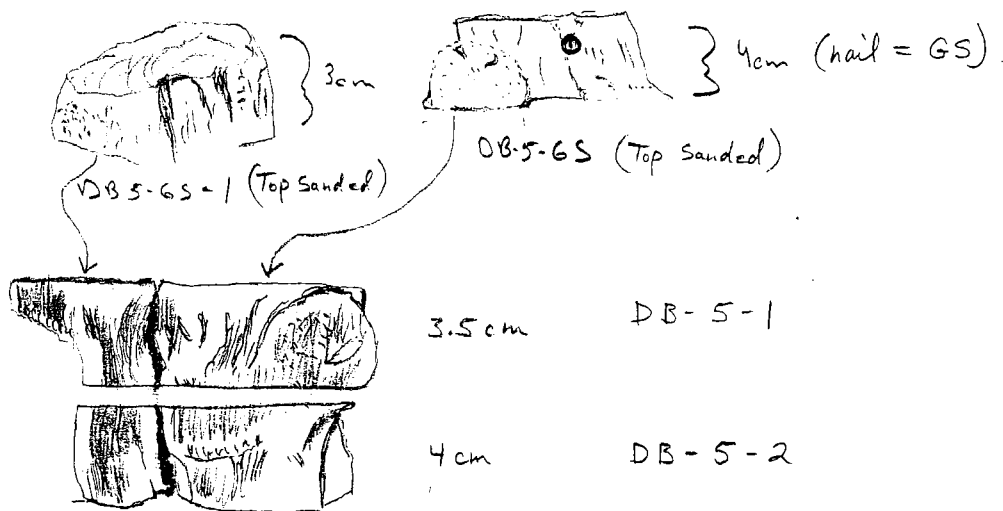 3cm
4cm (nail = GS)
DB5-GS-1 (Top Sanded)
DB-5-GS (Top Sanded)
3.5cm DB-5-1
4cm DB-5-2